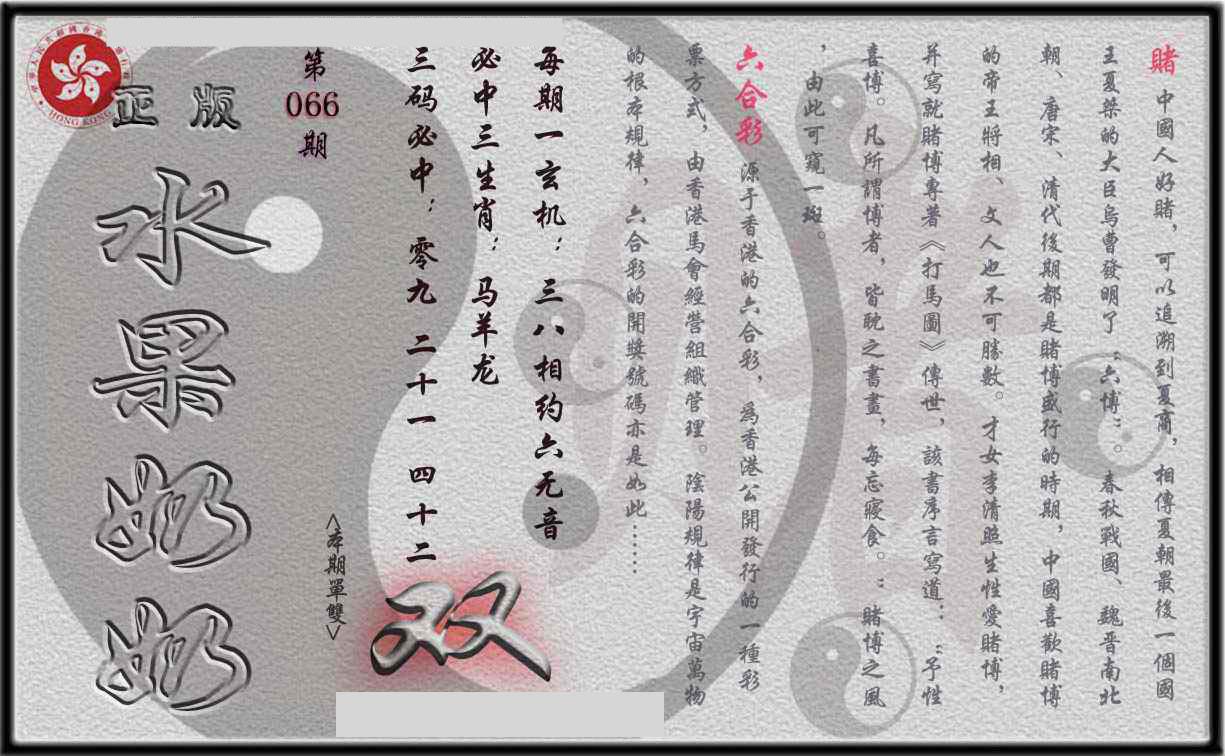 賭 中國人好賭，可以追溯到夏商，相傳夏朝最後一個國
王夏桀的大臣烏曹發明了“六博”。春秋戰國、魏晋南北
朝、唐宋、清代後期都是賭博盛行的時期，中國喜歡賭博
的帝王將相、文人也不可勝數。才女李清照生性愛賭博，
并寫就賭博專著《打馬圖》傳世，該書序言寫道：“予性
喜博。凡所謂博者，皆耽之書畫，每忘寢食。：賭博之風
，由此可窺一斑。
六合彩 源于香港的六合彩，為香港公開發行的一種彩
票方式，由香港馬會經營組織管理。陰陽規律是宇宙萬物
的根本規律，六合彩的開獎號碼亦是如此……
每期一玄机：三八相约六无音
必中三生肖：马羊龙
三码必中：零九 二十一 四十二
双
<本期單雙>
第
066
期
正版
水果奶奶
HONG KONG